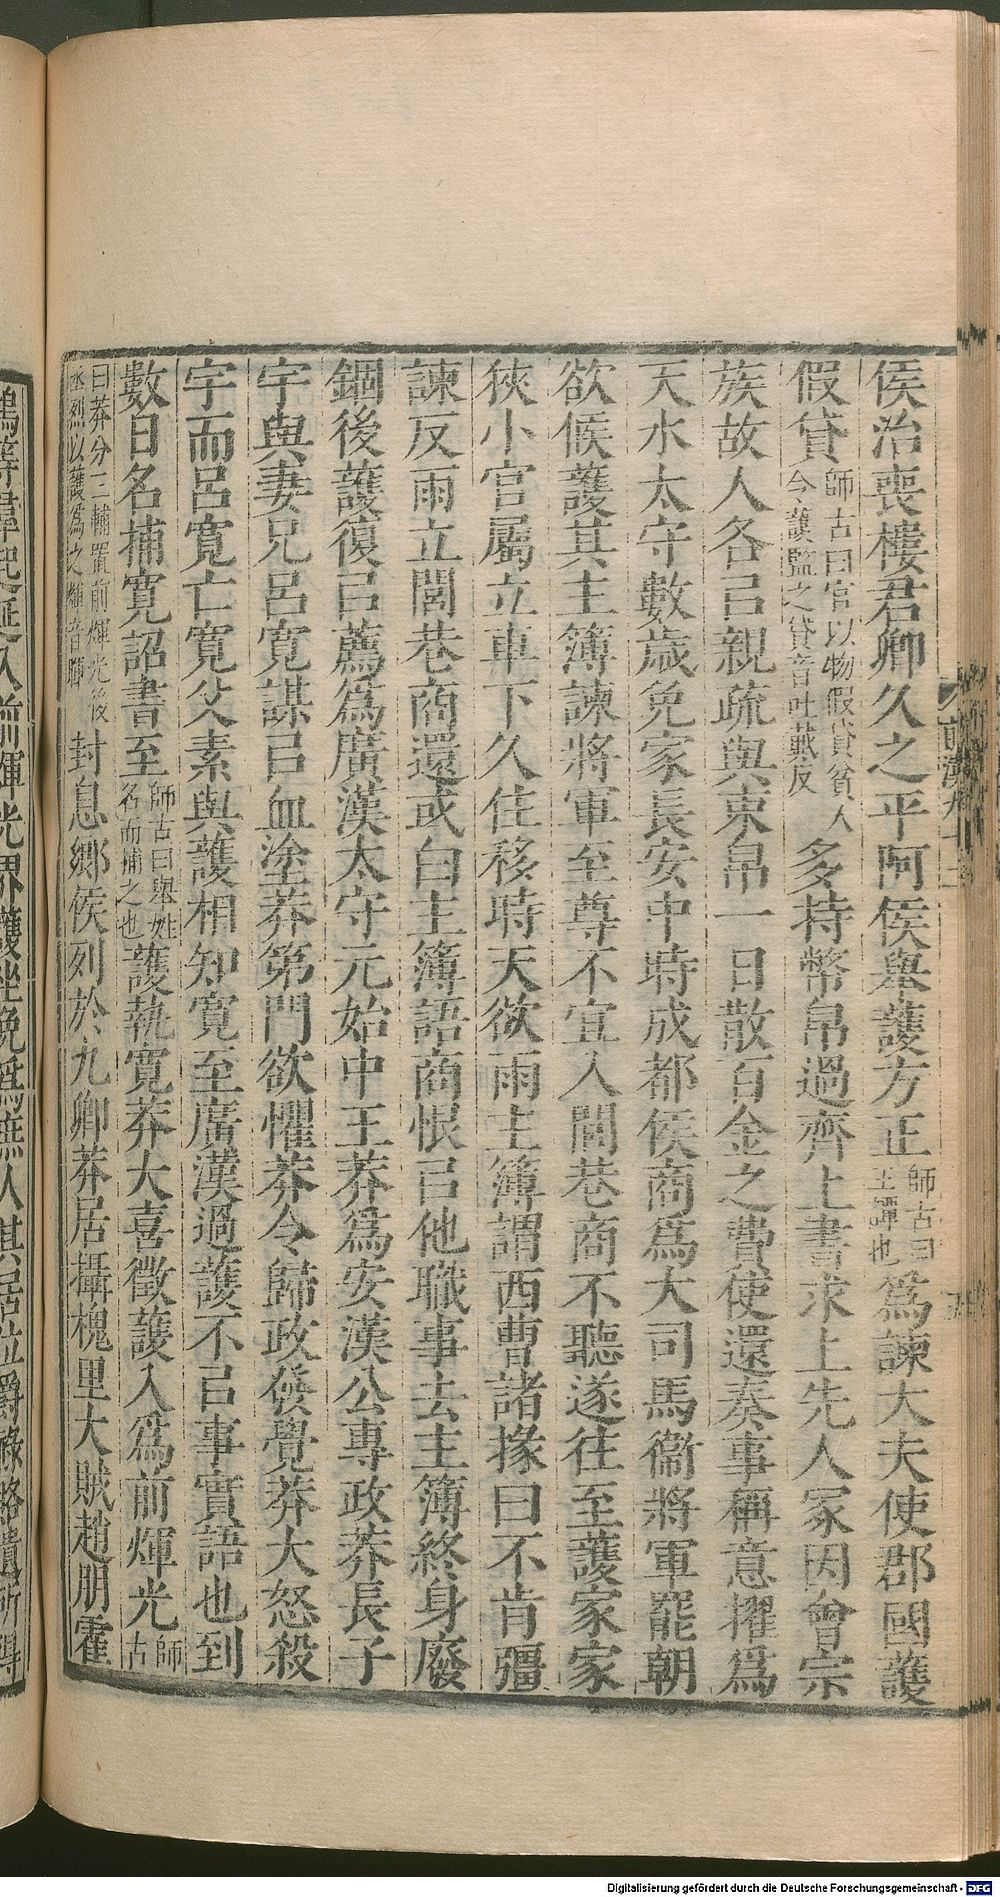 侯治喪樓君卿久之平阿侯舉護方正師古曰王譚也為諫大夫使郡國護
假貸師古曰官以物假貸貧人令護監之貸音吐戴反多持幣帛過齊上書求上先人冢因會宗
族故人各㠯親疏與束帛一日散百金之費使還奏事稱意擢為
天水太守數歲免家長安中時成都侯商為大司馬衞將軍罷朝
欲候護其主簿諫將軍至尊不宜入閭巷商不聽遂往至護家家
狹小官屬立車下久住移時天欲雨主簿謂西曹諸掾曰不肯彊
諫反雨立閭巷商還或白主簿語商恨㠯他職事去主簿終身廢
錮後護復㠯薦為廣漢太守元始中王莽為安漢公專政莽長子
宇與妻兄呂寬謀㠯血塗莽第門欲懼莽令歸政發覺莽大怒殺
宇而呂寬亡寬父素與護相知寬至廣漢過護不㠯事實語也到
數日名捕寬詔書至師古曰舉姓名而捕之也護執寬莽大喜徵護入為前煇光師古
曰莽分三輔置前煇光後丞烈以護為之煇音暉封息鄉侯列於九卿莽居攝槐里大賊趙朋霍
前漢九十二
鴻等羣起延入前煇光界護坐免為庶人其居位爵祿賂遺所得
Digitalisierung gefördert durch die Deutsche Forschungsgemeinschaft - DFG